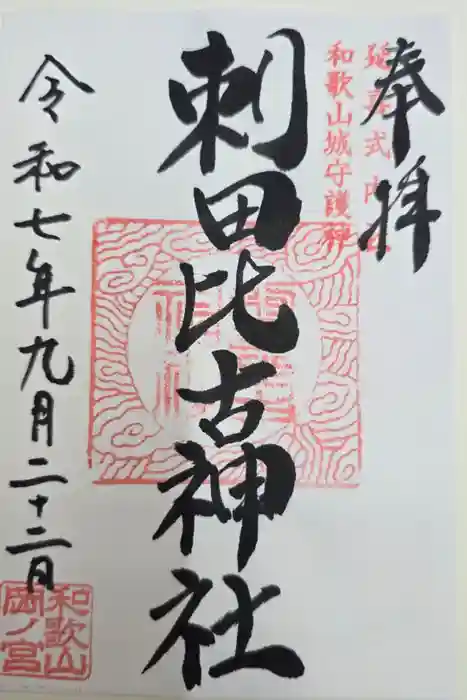 奉拝
延喜式内社
和歌山城守護神
刺田比古神社
令和七年九月二十二日
和歌山
岡ノ宮